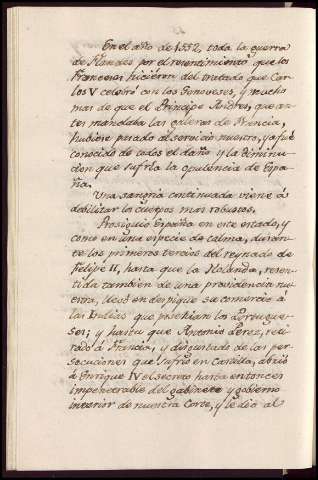 En el año de 1552, toda la guerra
de Flandes por el resentimiento que los
Franceses hicieron del tratado que Car
los V celebró con los Genoveses, y mucho
mas de que el Principe Andres, que an
tes mandaba las galeras de Francia,
hubiese pasado al servicio nuestro, ya fué
conocido de todos el daño y la diminu
cion que sufría la opulencia de Espa
ña.
Una sangria continuada viene á
debilitar los cuerpos mas robustos.
Prosiguió España en este estado, y
como en una especie de calma, duran
te los primeros tercios del reynado de
Felipe II, hasta que la Holanda, resen
tida tambien de una providencia nu
estra, llevó en despique su comercio á
las Indias que poséhian los Portugue
ses; y hasta que Antonio Perez, reti
rado á Francia, y disgustado de las per
secuciones que sufrió en Castilla, abrió
á Enrique IV el secreto hasta entonces
impenetrable del gabinete y gobierno
interior de nuestra Corte, y le dió al